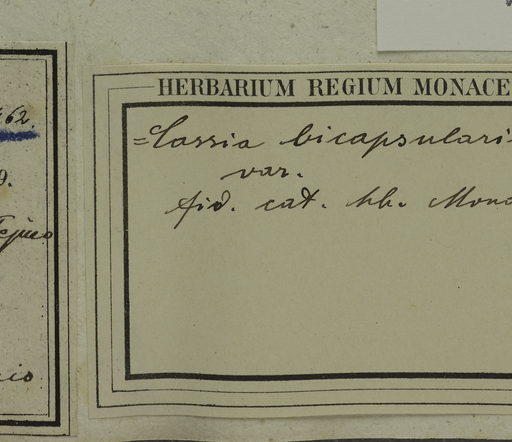 462.
9.
Tejuco
cio
HERBARIUM REGIUM MONACE
=Cassia bicapsulari
var.
fid. cat. hb. Mona